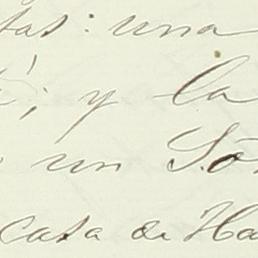 tas: una
; y la
un S.
casa de Ha